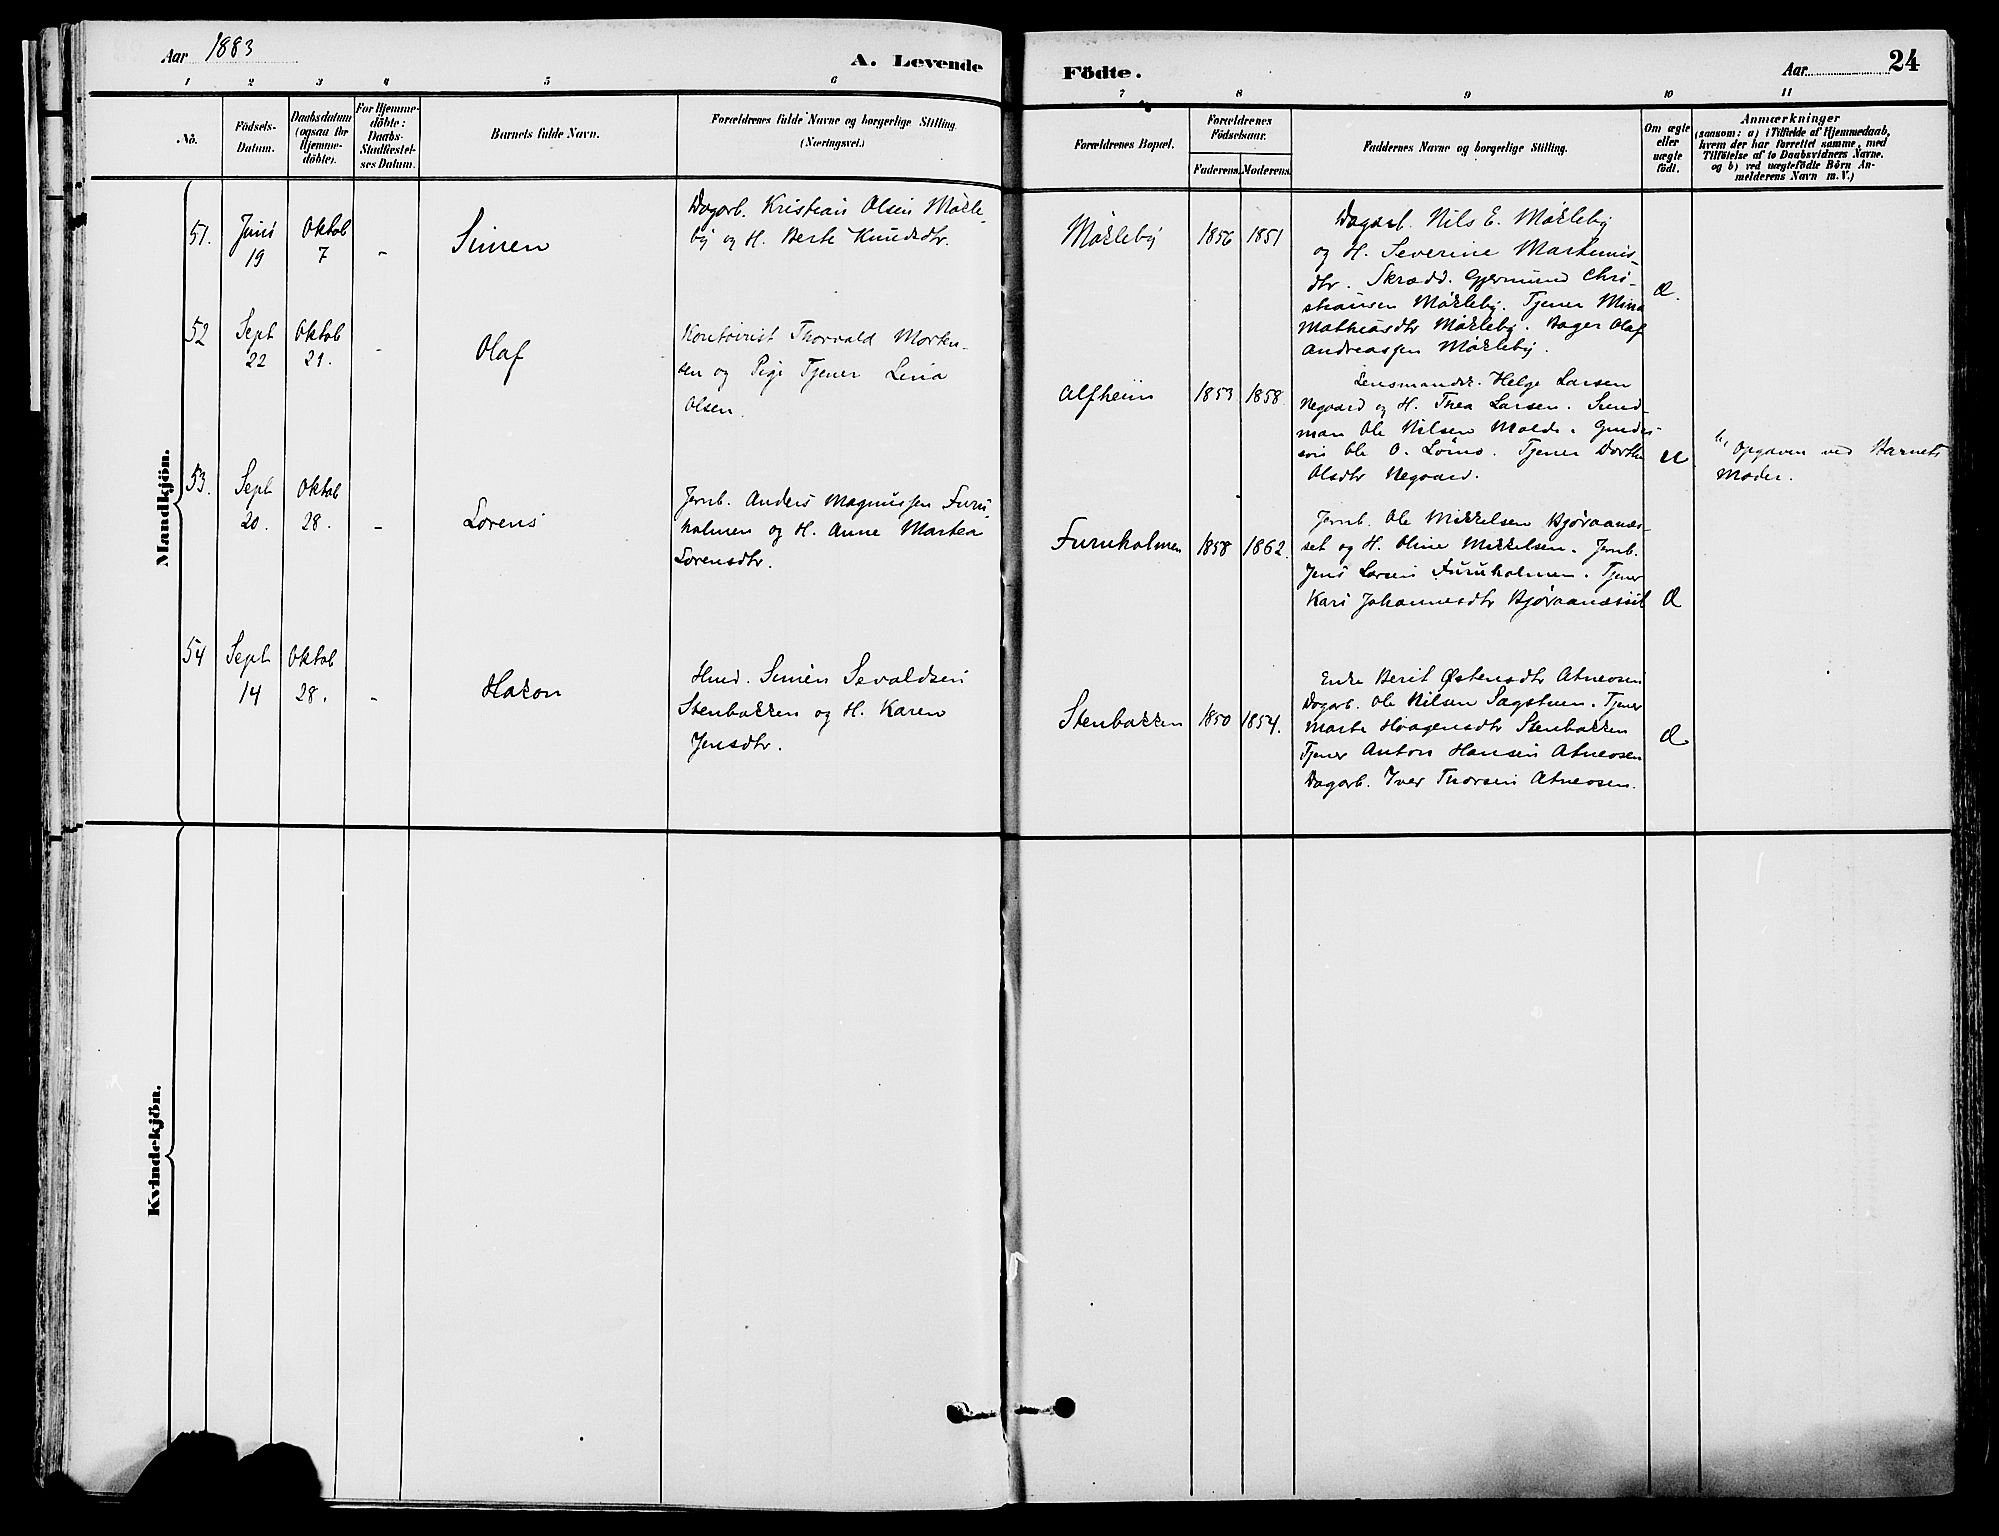 Aar 1883
A. Levende
Födte.
Aar
24
1 2 3 4 5 6 7 8 9 10 11
No.
Födsels-
Datum.
Daabsdatum
(ogsaa for
Hjemme-
döbte).
For Hjemme-
döbte:
Daabs-
Stadfæstel-
ses Datum.
Barnets fulde Navn.
Forældrenes fulde Navne og borgerlige Stilling.
(Næringsvei.)
Forældrenes Bopæl.
Forældrenes
Födselsaar.
Faderens. Moderens.
Faddernes Navne og borgerlige Stilling.
Om ægte
eller
uægte
födt.
Anmærkninger
(saasom: a) i Tilfælde af Hjemmedaab,
hvem der har forrettet samme, med
Tilföielse af to Daabsvidners Navne.
og b) ved uægtefödte Börn An-
melderens Navn m. V.)
Mandkjön.
51.
Juni
19
Oktob
7
-
Simen
Dagarb. Kristian Olsen Mørkle-
by og H. Berte Knudsdtr.
Mørkleby
1856
1851
Dagarb. Nils E. Mørkleby
og H. Severine Martinis-
dtr. Skrædd. Gjermund Chri-
stiansen Mørkleby. Tjener Mina
Mathiasdtr Mørkleby. Bager Olaf
Andreassen Mørkleby.
Æ.
52
Sept
22
Oktob
21.
-
Olaf
Kontorist Thorvald Morten-
sen og Pige Tjener Lina
Olsen.
Alfheim
1853
1858
Lensmandsk. Helge Larsen
Negaard og H. Thea Larsen. Sund-
man Ole Nilsen Molde. Gaardei-
Ole O. Lømo. Tjener Dorthe
Olsdtr Negaard.
U.
b, Opgaven ved Barnets
Moder.
53.
Sept
20.
Oktob
28.
-
Lorens
Jernb. Anders Magnussen Furu-
holmen og H. Anne Martea
Lorensdtr.
Furuholmen
1858
1862.
Jernb. Ole Mikkelsen Bjøraanæs-
set og H. Oline Mikkelsen. Jernb.
Jens Larsen Furuholmen. Tjener
Kari Johannesdtr Bjøraanæsset
Æ
54
Sept
14
Oktob
28.
-
Hakon
Hmd. Simen Sevaldsen
Stenbakken og H. Karen
Jensdtr.
Stenbakken
1850
1854.
Enke Berit Østensdtr Atneosen
Dagarb. Ole Nilsen Sagstuen. Tjener
Marte Haagensdtr Stenbakken
Tjener Anton Hansen Atneosen
Dagarb. Iver Thorsen Atneosen.
Æ
Kvindekjön.